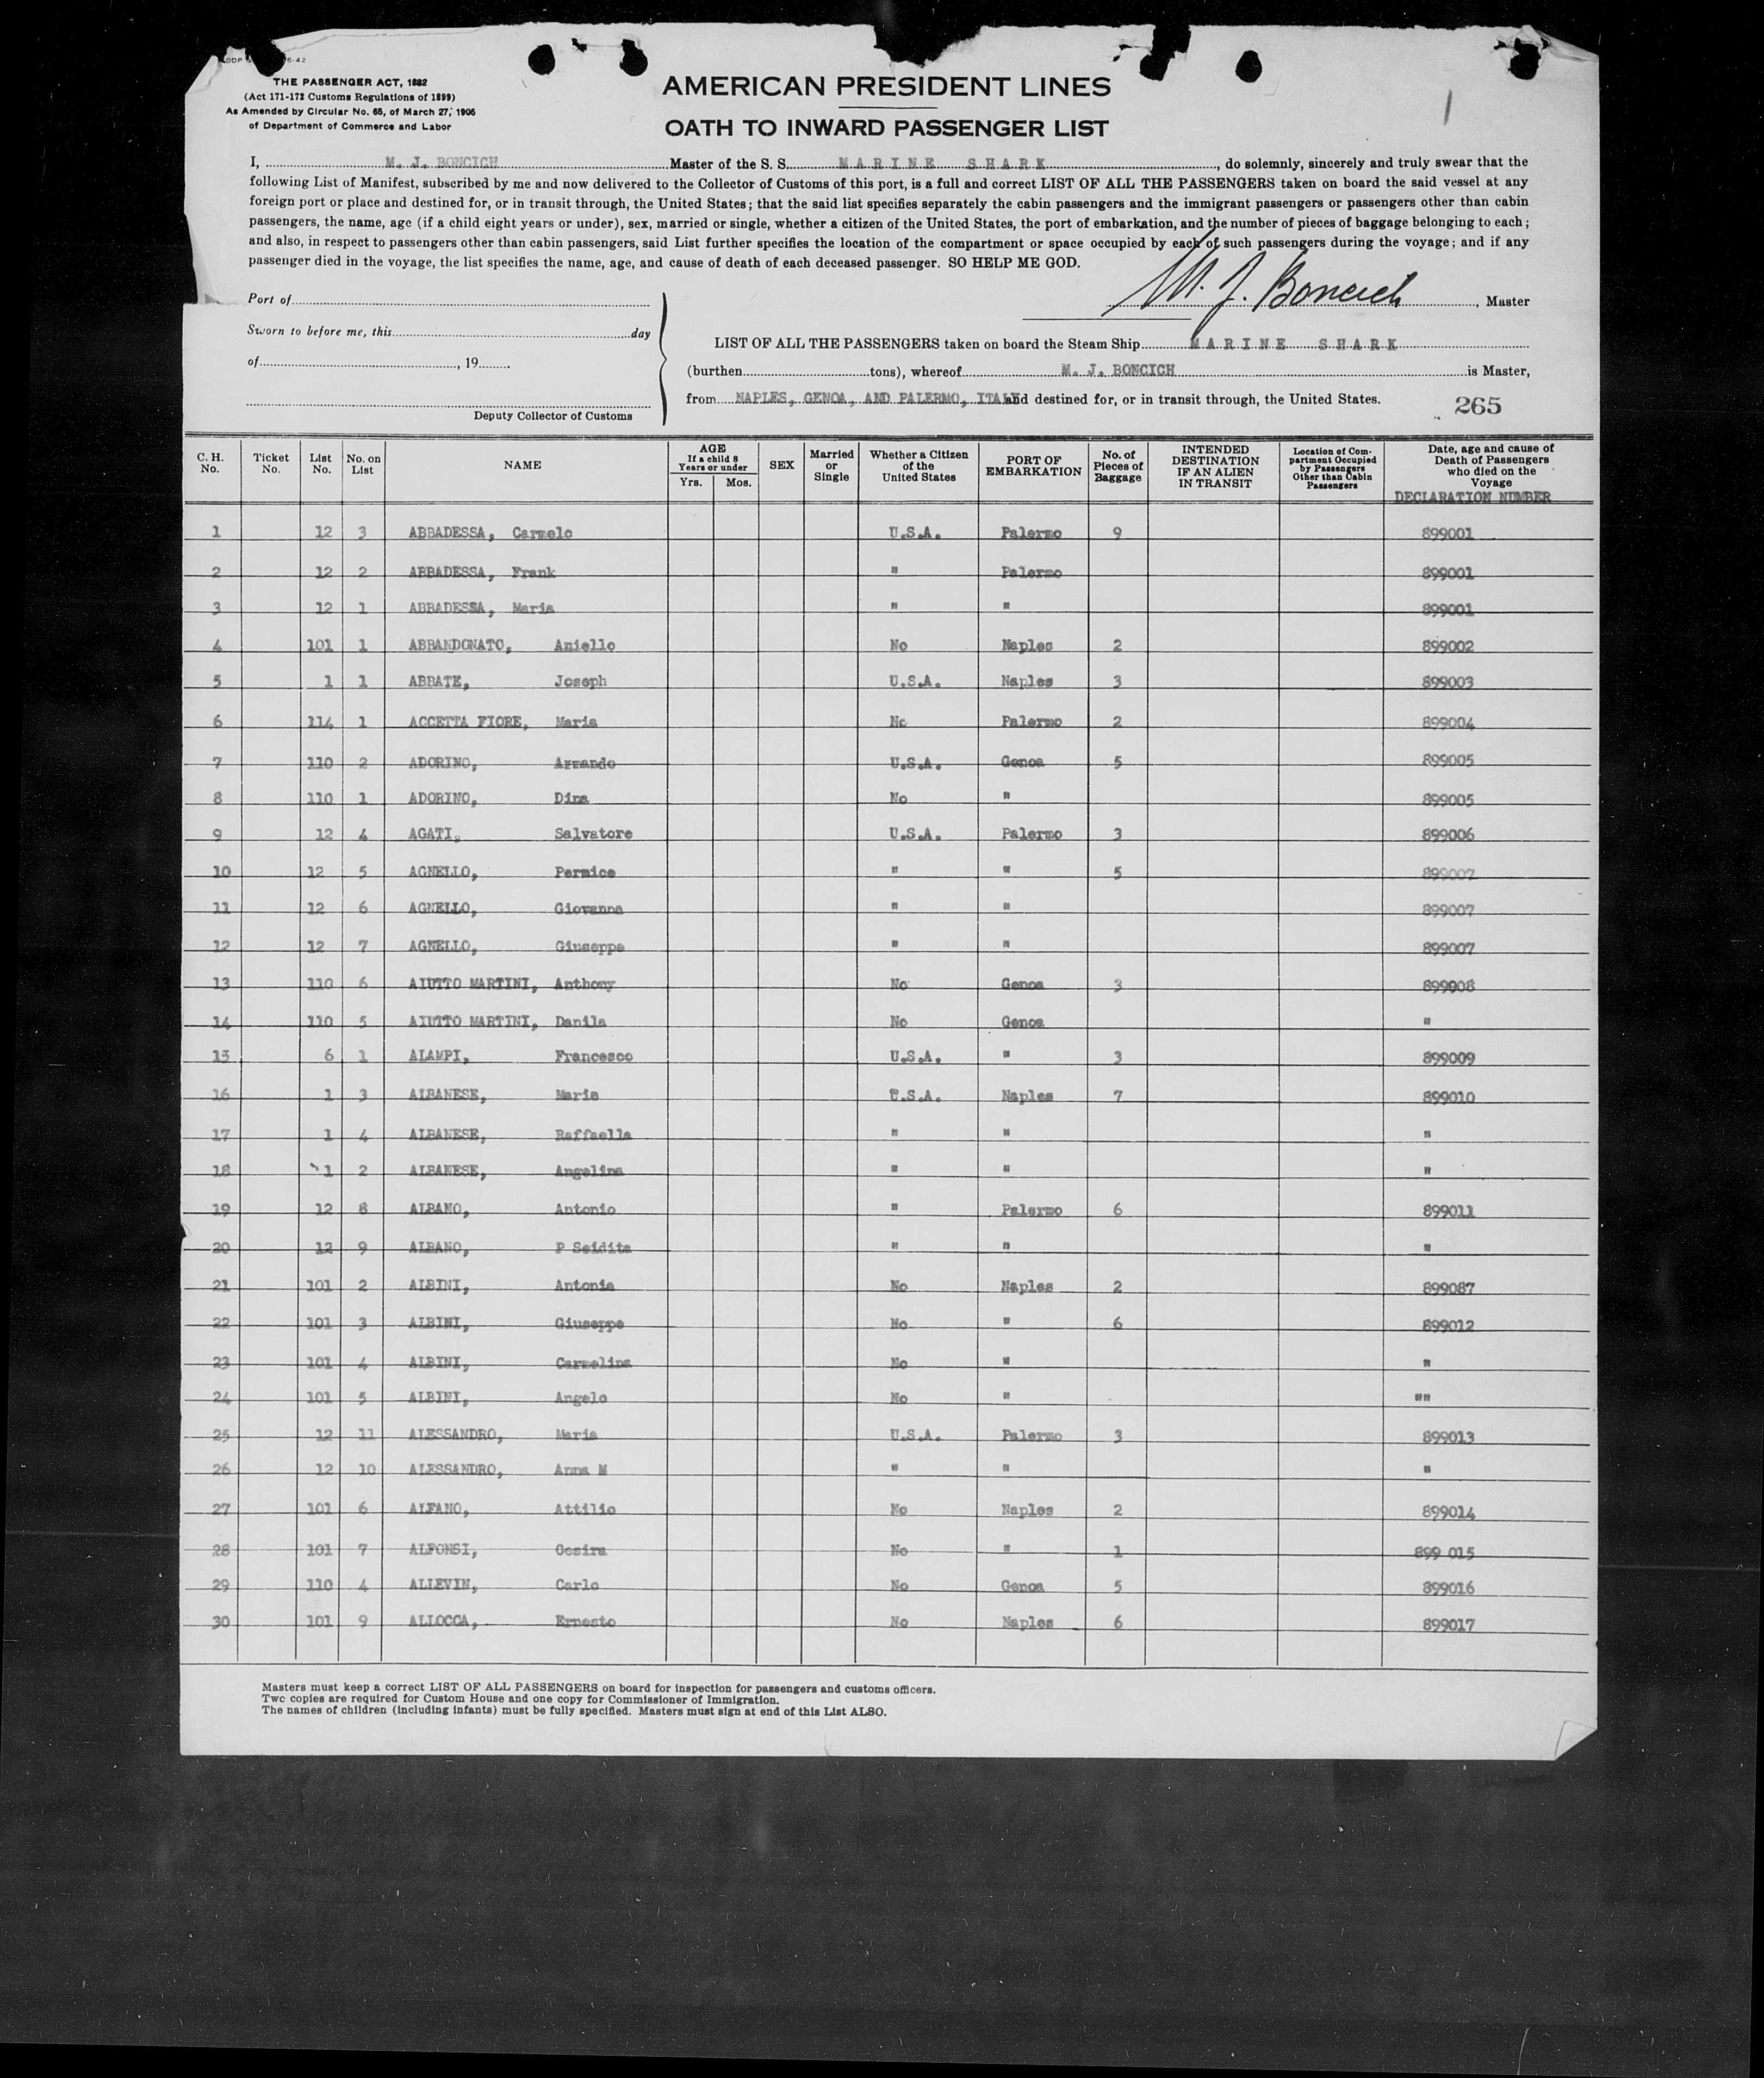 6-42
THE PASSENGER ACT, 1882
(Act 171-172 Customs Regulations of 1899)
As Amended by Circular No. 65, of March 27, 1905
of Department of Commerce and Labor
AMERICAN PRESIDENT LINES
OATH TO INWARD PASSENGER LIST
1
I, M. J. BONCICH Master of the S. S. MARINE SHARK, do solemnly, sincerely and truly swear that the
following List of Manifest, subscribed by me and now delivered to the Collector of Customs of this port, is a full and correct LIST OF ALL THE PASSENGERS taken on board the said vessel at any
foreign port or place and destined for, or in transit through, the United States; that the said list specifies separately the cabin passengers and the immigrant passengers or passengers other than cabin
passengers, the name, age (if a child eight years or under), sex, married or single, whether a citizen of the United States, the port of embarkation, and the number of pieces of baggage belonging to each;
and also, in respect to passengers other than cabin passengers, said List further specifies the location of the compartment or space occupied by each of such passengers during the voyage; and if any
passenger died in the voyage, the list specifies the name, age, and cause of death of each deceased passenger. SO HELP ME GOD.
Port of
M. J. Boncich, Master
Sworn to before me, this day
of , 19
Deputy Collector of Customs
LIST OF ALL THE PASSENGERS taken on board the Steam Ship MARINE SHARK
(burthen tons), whereof M. J. BONCICH is Master,
from NAPLES, GENOA, AND PALERMO, ITALY and destined for, or in transit through, the United States.
265
C. H. No. Ticket No. List No. No. on List NAME AGE If a child 8 Years or under Yrs. Mos. SEX Married or Single Whether a Citizen of the United States PORT OF EMBARKATION No. of Pieces of Baggage INTENDED DESTINATION IF AN ALIEN IN TRANSIT Location of Compartment Occupied by Passengers Other than Cabin Passengers Date, age and cause of Death of Passengers who died on the Voyage
DECLARATION NUMBER
1 12 3 ABBADESSA, Carmelo U.S.A. Palermo 9 899001
2 12 2 ABBADESSA, Frank " Palermo 899001
3 12 1 ABBADESSA, Maria " " 899001
4 101 1 ABBANDONATO, Aniello No Naples 2 899002
5 1 1 ABBATE, Joseph U.S.A. Naples 3 899003
6 114 1 ACCETTA FIORE, Maria No Palermo 2 899004
7 110 2 ADORINO, Armando U.S.A. Genoa 5 899005
8 110 1 ADORINO, Dina No " 899005
9 12 4 AGATI, Salvatore U.S.A. Palermo 3 899006
10 12 5 AGNELLO, Pernice " " 5 899007
11 12 6 AGNELLO, Giovanna " " 899007
12 12 7 AGNELLO, Giuseppe " " 899007
13 110 6 AIUTTO MARTINI, Anthony No Genoa 3 899008
14 110 5 AIUTTO MARTINI, Danila No Genoa "
15 6 1 ALAMPI, Francesco U.S.A. " 3 899009
16 1 3 ALBANESE, Maria U.S.A. Naples 7 899010
17 1 4 ALBANESE, Raffaella " " "
18 1 2 ALBANESE, Angelina " " "
19 12 8 ALBANO, Antonio " Palermo 6 899011
20 12 9 ALBANO, P Seidita " " "
21 101 2 ALBINI, Antonia No Naples 2 899087
22 101 3 ALBINI, Giuseppe No " 6 899012
23 101 4 ALBINI, Carmelina No " "
24 101 5 ALBINI, Angelo No " ""
25 12 11 ALESSANDRO, Maria U.S.A. Palermo 3 899013
26 12 10 ALESSANDRO, Anna M " " "
27 101 6 ALFANO, Attilio No Naples 2 899014
28 101 7 ALFONSI, Cesira No " 1 899 015
29 110 4 ALLEVIN, Carlo No Genoa 5 899016
30 101 9 ALLOCCA, Ernesto No Naples 6 899017
Masters must keep a correct LIST OF ALL PASSENGERS on board for inspection for passengers and customs officers.
Two copies are required for Custom House and one copy for Commissioner of Immigration.
The names of children (including infants) must be fully specified. Masters must sign at end of this List ALSO.